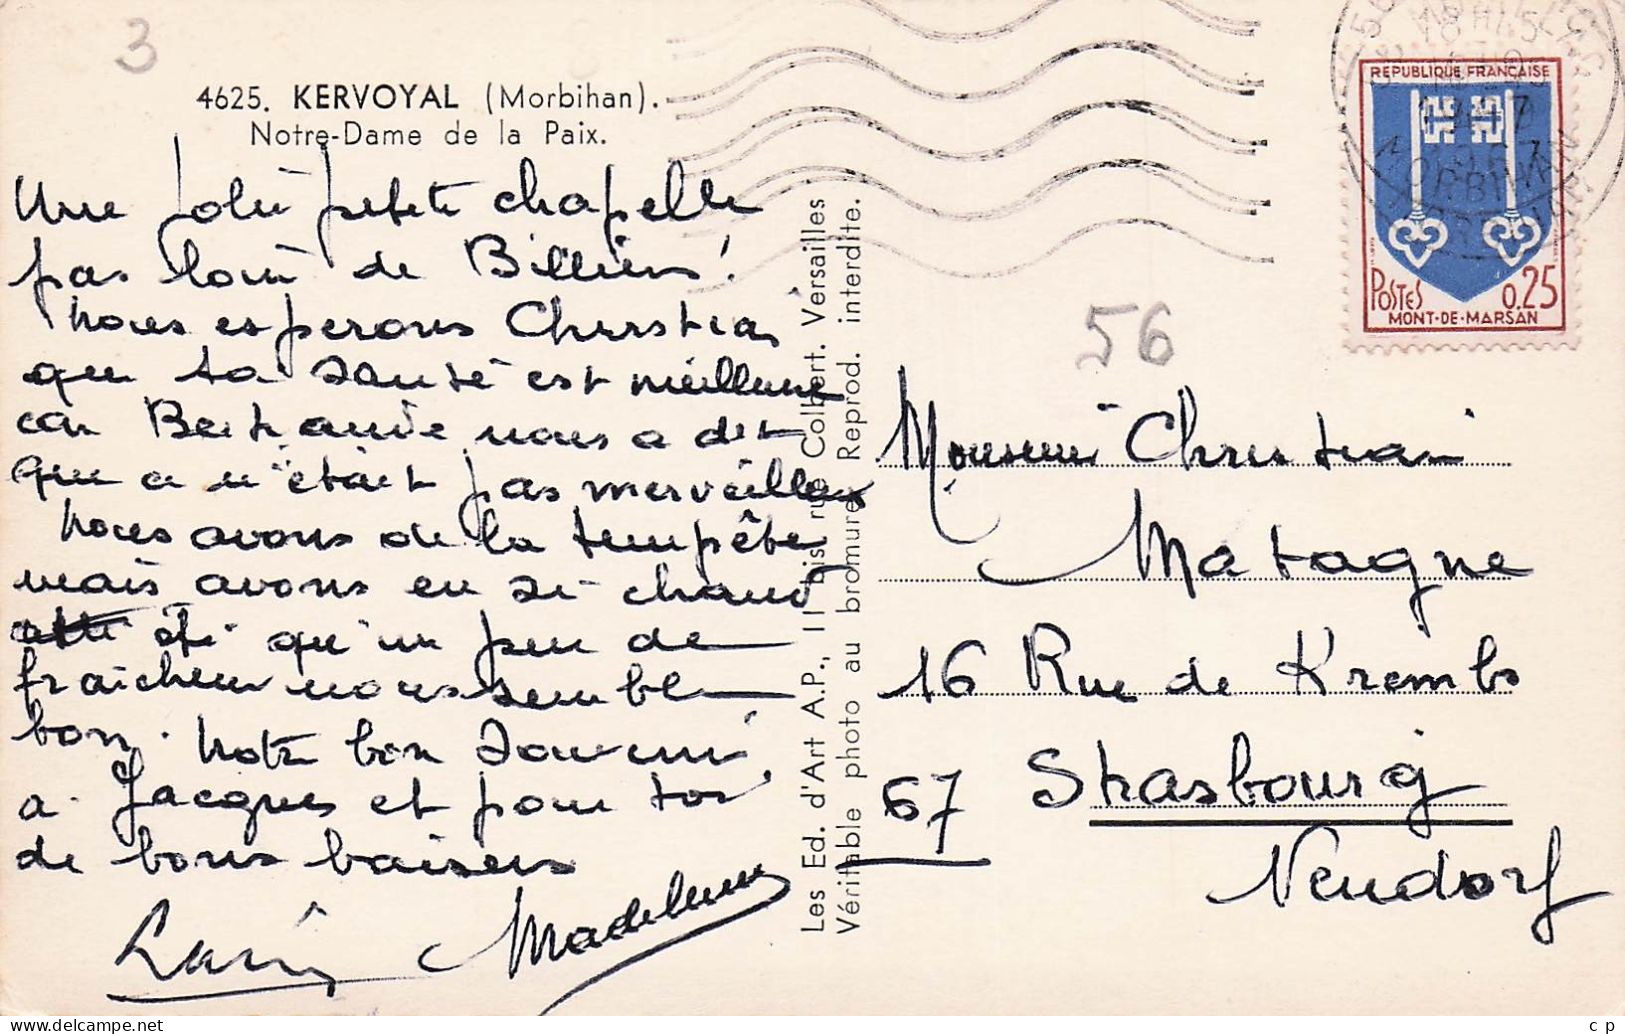 3
4625. KERVOYAL (Morbihan).
Notre-Dame de la Paix.
Une jolie petite chapelle
pas loin de Billiers!
Nous esperons Christian
que ta santé est meilleure
car Bertrande nous a dit
que ce n'était pas merveilleux
Nous avons de la tempête
mais avons eu si chaud
été qu'un peu de
fraicheur nous semble
bon. Notre bon souvenir
a Jacques et pour toi
de bons baisers
Madeleine
Les Ed. d'Art A.P., 11 bis rue Colbert. Versailles
Véritable photo au bromure. Reprod. interdite.
REPUBLIQUE FRANÇAISE
POSTES 0,25
MONT-DE-MARSAN
18 H 15
MORBIHAN
56
Monsieur Christian
Matagne
16 Rue de Krembs
67 Strasbourg
Neudorf
c p